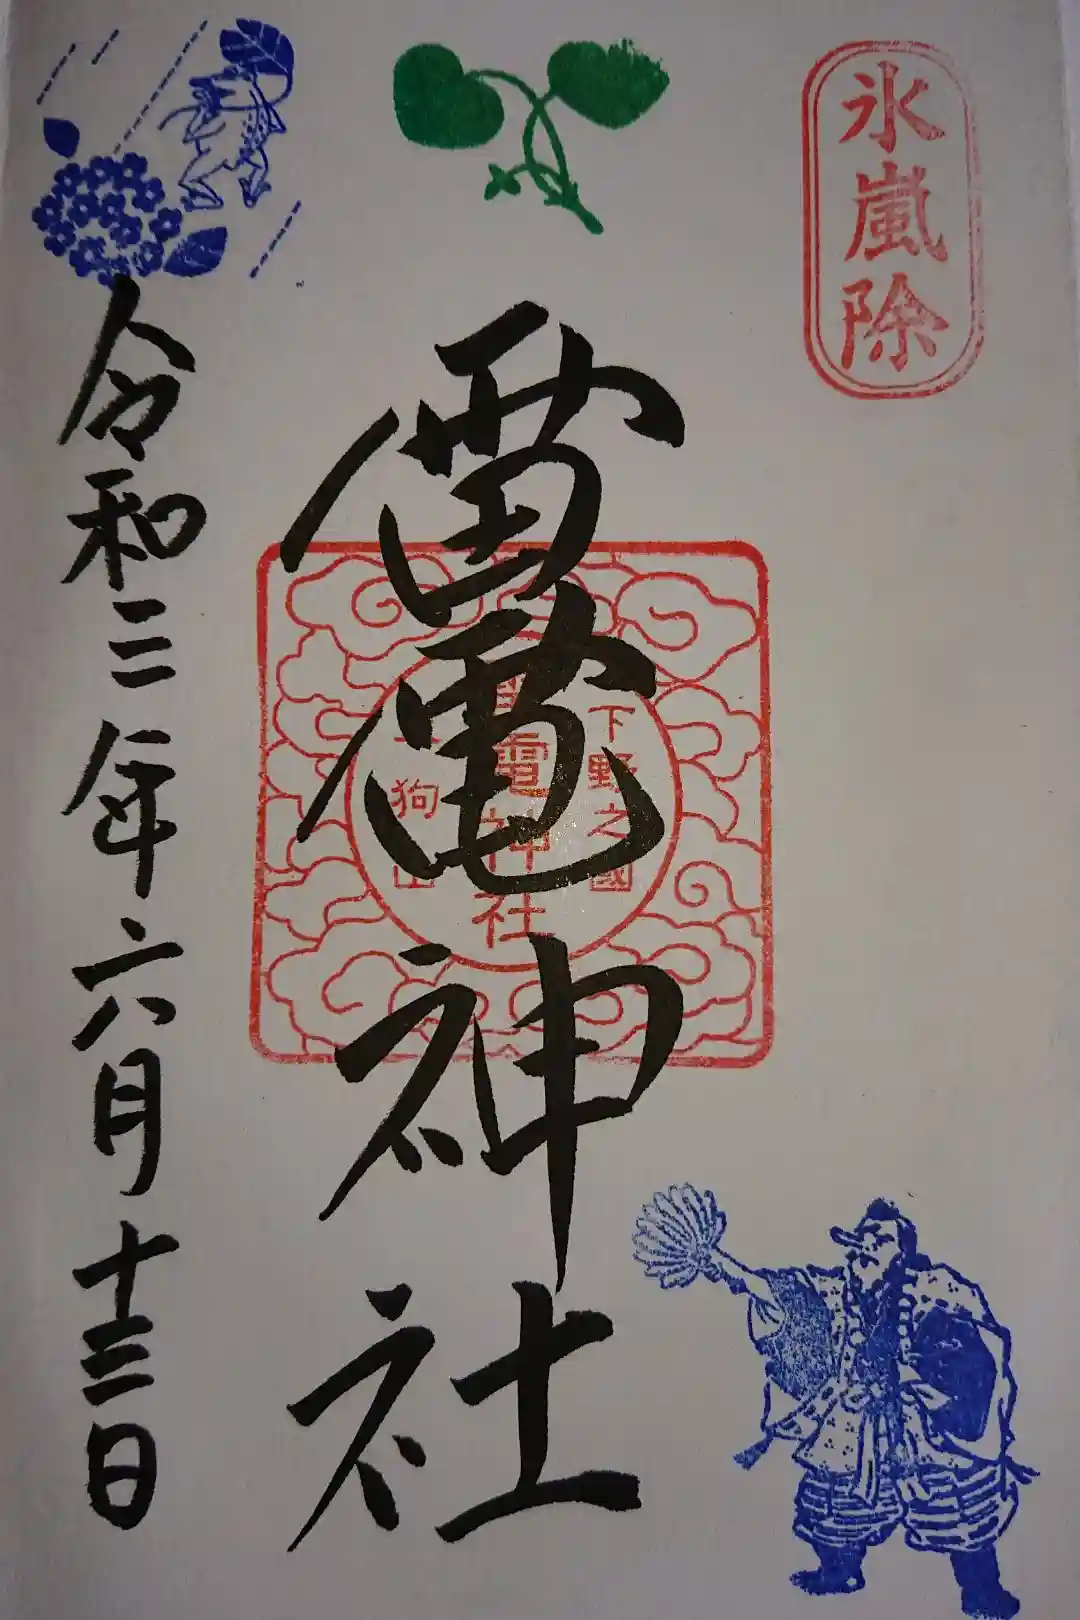 氷嵐除
雷電神社
下野之國
雷電神社
天狗山
令和三年六月十三日